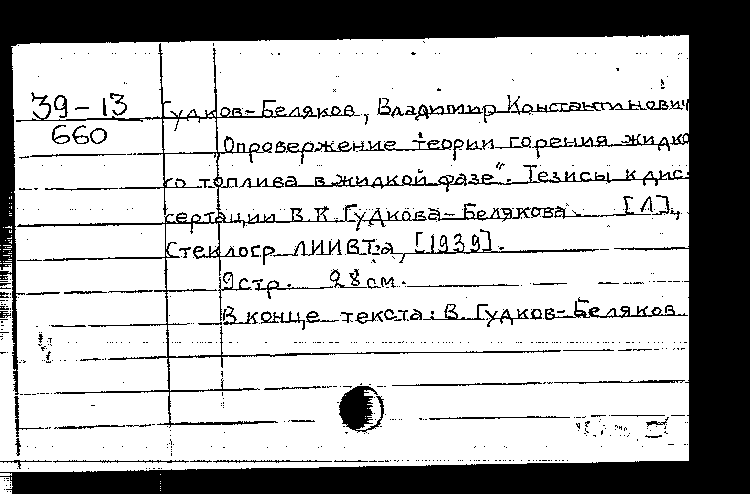 39-13
660
Гудков-Беляков, Владимир Константинович
„Опровержение теории горения жидко
го топлива в жидкой фазе“. Тезисы к дис-
сертации В.К. Гудкова-Белякова. [Л],
Стеклогр ЛИИВТ'а, [1939].
9 стр. 28 см.
В конце текста: В. Гудков-Беляков